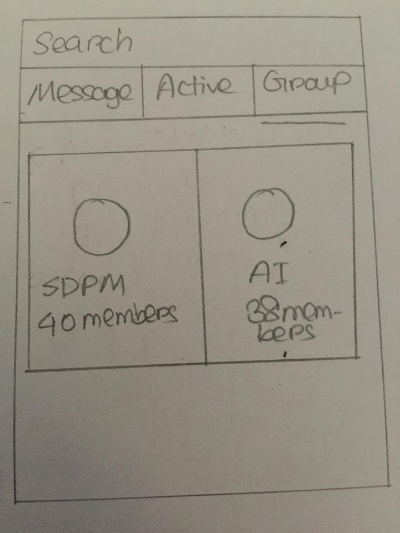 Search
Message Active Group
SDPM
40 members
AI
38 mem-
bers